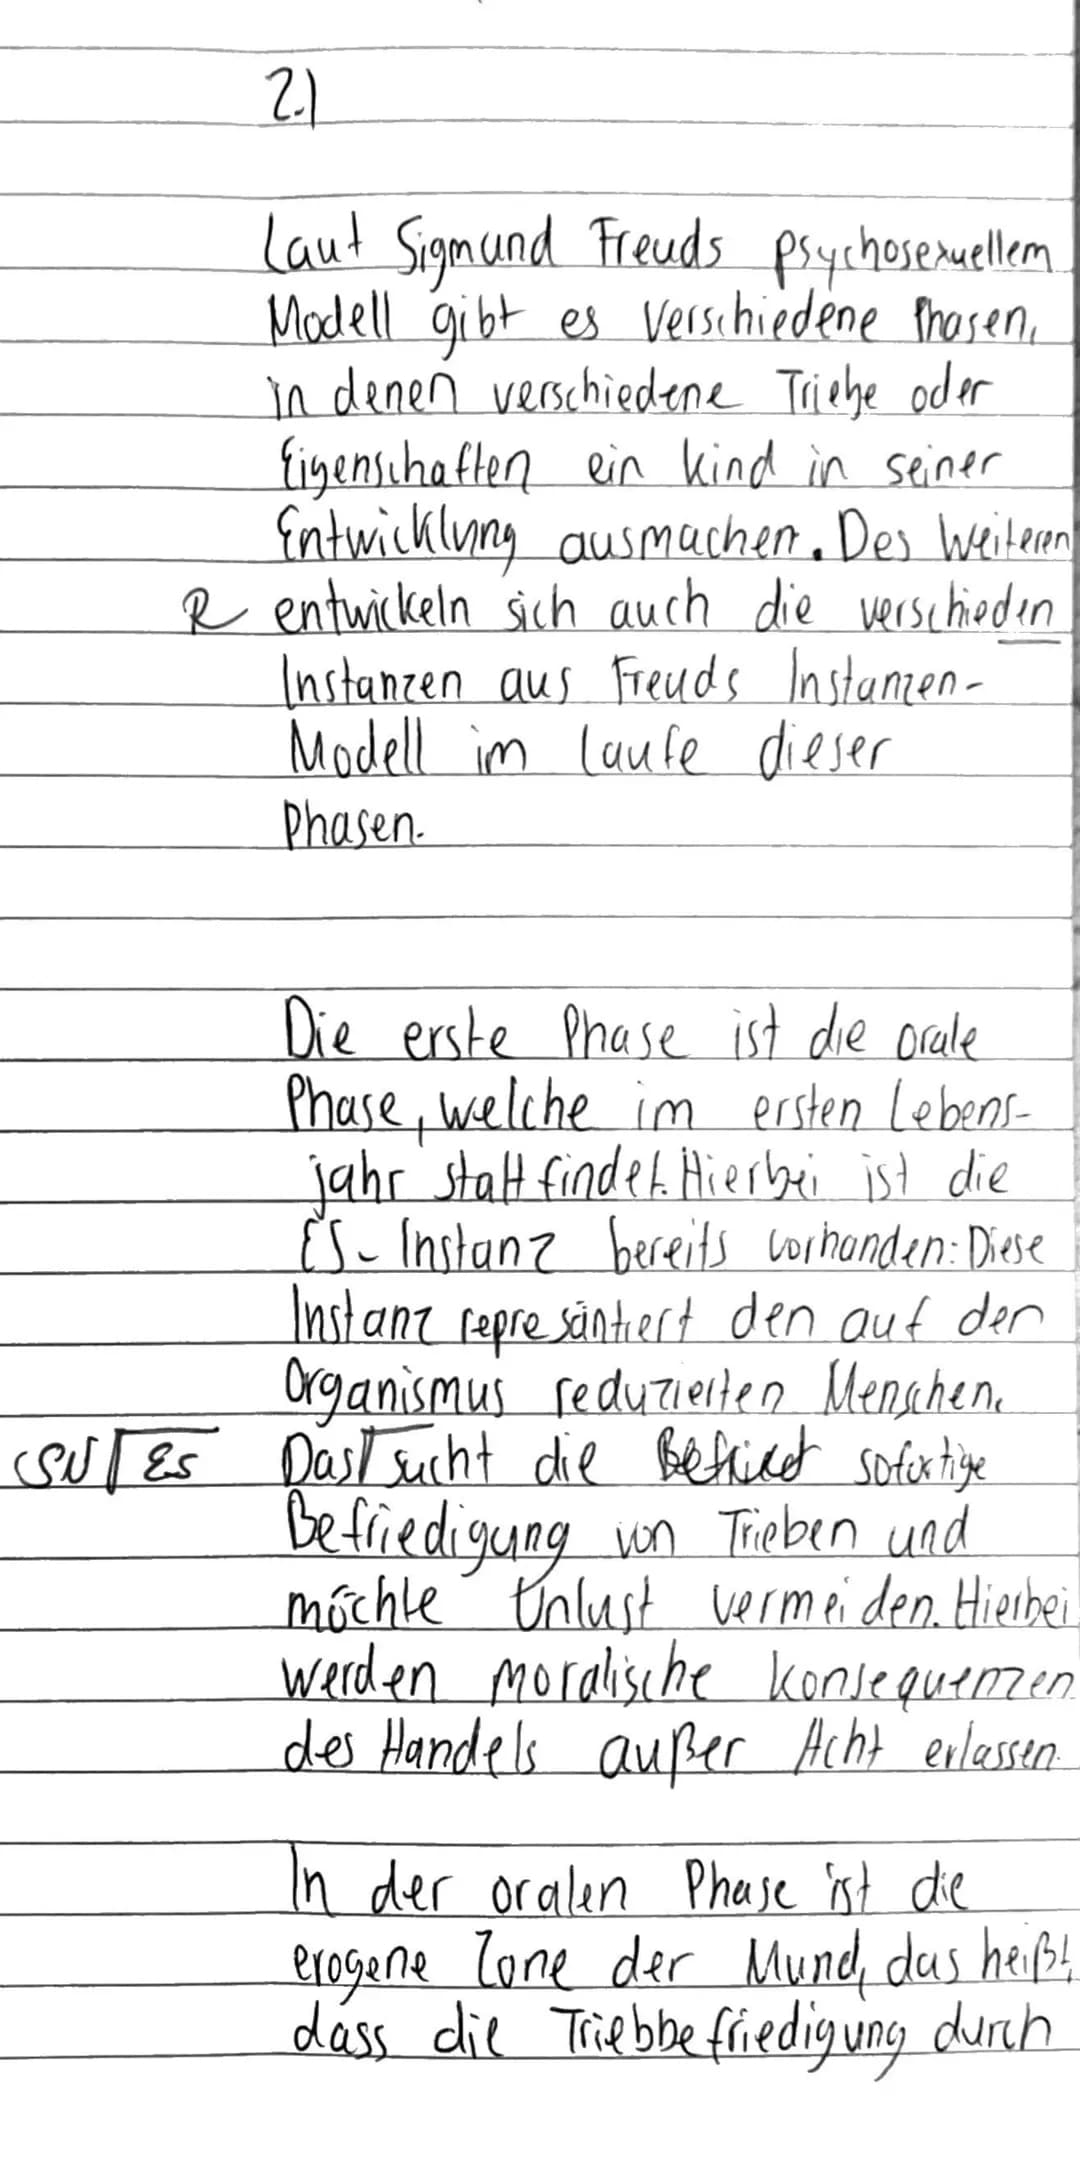 2.)
Laut Sigmund Freuds psychosexuellem
Modell gibt es verschiedene Phasen,
in denen verschiedene Triebe oder
Eigenschaften ein Kind in seiner
Entwicklung ausmachen. Des Weiteren
R entwickeln sich auch die verschieden
Instanzen aus Freuds Instanzen-
Modell im Laufe dieser
Phasen.
Die erste Phase ist die orale
Phase, welche im ersten Lebens-
jahr stattfindet. Hierbei ist die
ES-Instanz bereits vorhanden: Diese
Instanz represäntiert den auf den
Organismus reduzierten Menschen.
Es Das sucht die sofortige
Befriedigung von Trieben und
möchte Unlust vermeiden. Hierbei
werden moralische Konsequenzen
des Handels außer Acht erlassen.
In der oralen Phase ist die
erogene Zone der Mund, das heißt,
dass die Triebbefriedigung durch